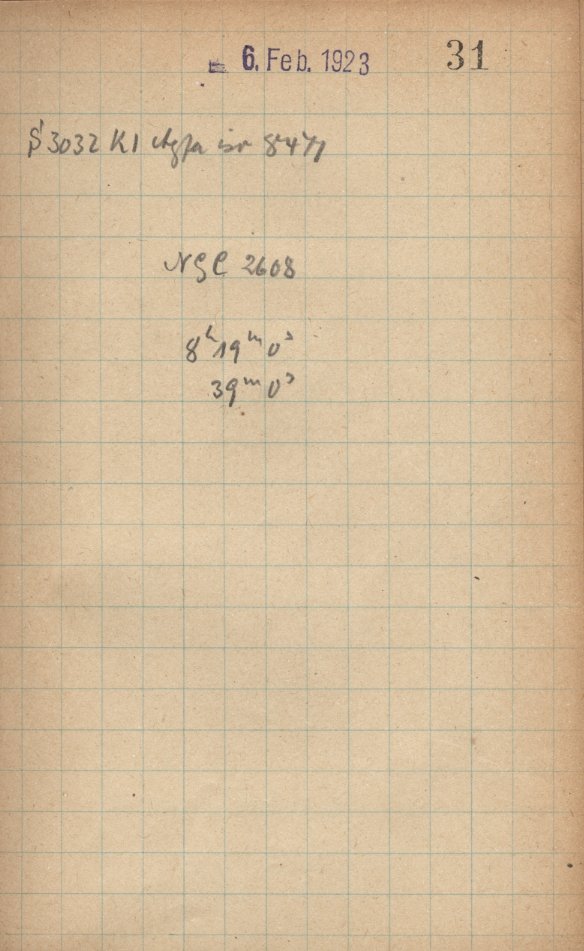 6. Feb. 1923 31
3032 K1 Agfa iso 8471
NGC 2608
8ʰ 19ᵐ 0ˢ
39ᵐ 0ˢ